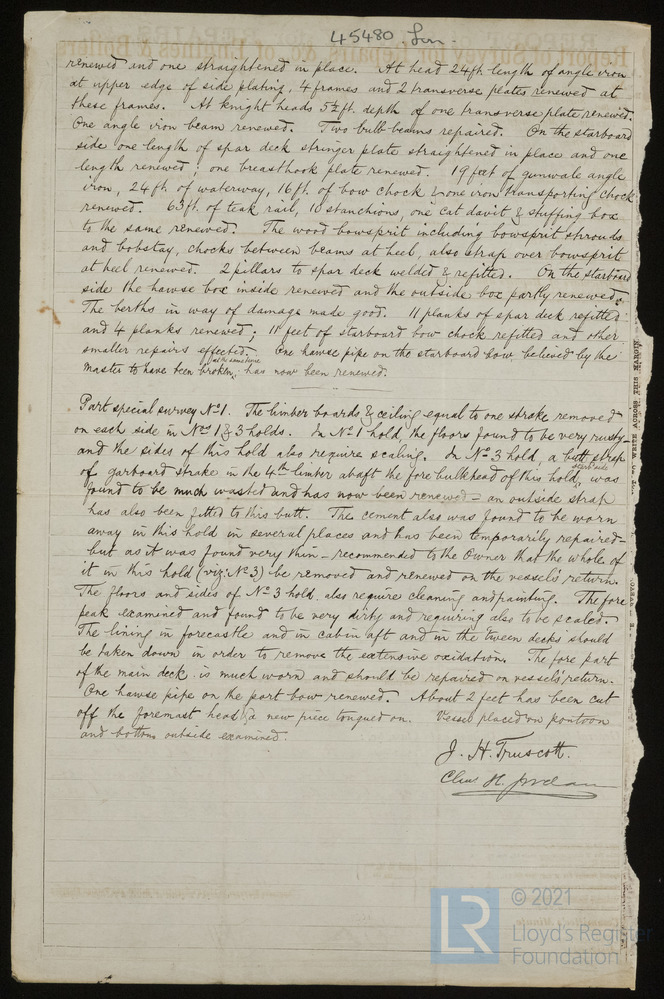 45480 Lon.
renewed and one straightened in place. At head 24ft length of angle iron
at upper edge of side plating, 4 frames and 2 transverse plates renewed at
these frames. At knight heads 5½ ft. depth of one transverse plate renewed.
One angle iron beam renewed. Two bulb beams repaired. On the starboard
side one length of spar deck stringer plate straightened in place and one
length renewed; one breasthook plate renewed. 19 feet of gunwale angle
iron, 24 ft of waterway, 16 ft. of bow chock & one iron transporting chock
renewed. 63 ft. of teak rail, 10 stanchions, one cat davit & stuffing box
to the same renewed. The wood bowsprit including bowsprit shrouds
and bobstay, chocks between beams at heel, also strap over bowsprit
at heel renewed. 2 pillars to spar deck welded & refitted. On the starboard
side the hawse box inside renewed and the outside box partly renewed.
The berths in way of damage made good. 11 planks of spar deck refitted
and 4 planks renewed; 11 feet of starboard bow chock refitted and other
smaller repairs effected. One hawse pipe on the starboard bow believed by the
at the same time
Master to have been broken, has now been renewed.
Part special survey No 1. The limber boards & ceiling equal to one strake removed
on each side in Nos 1 & 3 holds. In No 1 hold, the floors found to be very rusty
and the sides of this hold also require scaling. In No 3 hold, a butt strap
of garboard strake in the 4th limber abaft the fore bulkhead of this hold, starbd side was
found to be much wasted and has now been renewed - an outside strap
has also been fitted to this butt. The cement also was found to be worn
away in this hold in several places and has been temporarily repaired
but as it was found very thin - recommended to the Owner that the whole of
it in this hold (viz: No 3) be removed and renewed on the vessel's return.
The floors and sides of No 3 hold, also require cleaning and painting. The fore
peak examined and found to be very dirty and requiring also to be scaled.
The lining in forecastle and in cabin aft and in the tween decks should
be taken down in order to remove the extensive oxidation. The fore part
of the main deck is much worn and should be repaired on vessel's return.
One hawse pipe on the port bow renewed. About 2 feet has been cut
off the foremast head & a new piece tongued on. Vessel placed on pontoon
and bottom outside examined.
J. H. Truscott.
Chas. H. Jordan
© 2021
Lloyd's Register
Foundation
LR